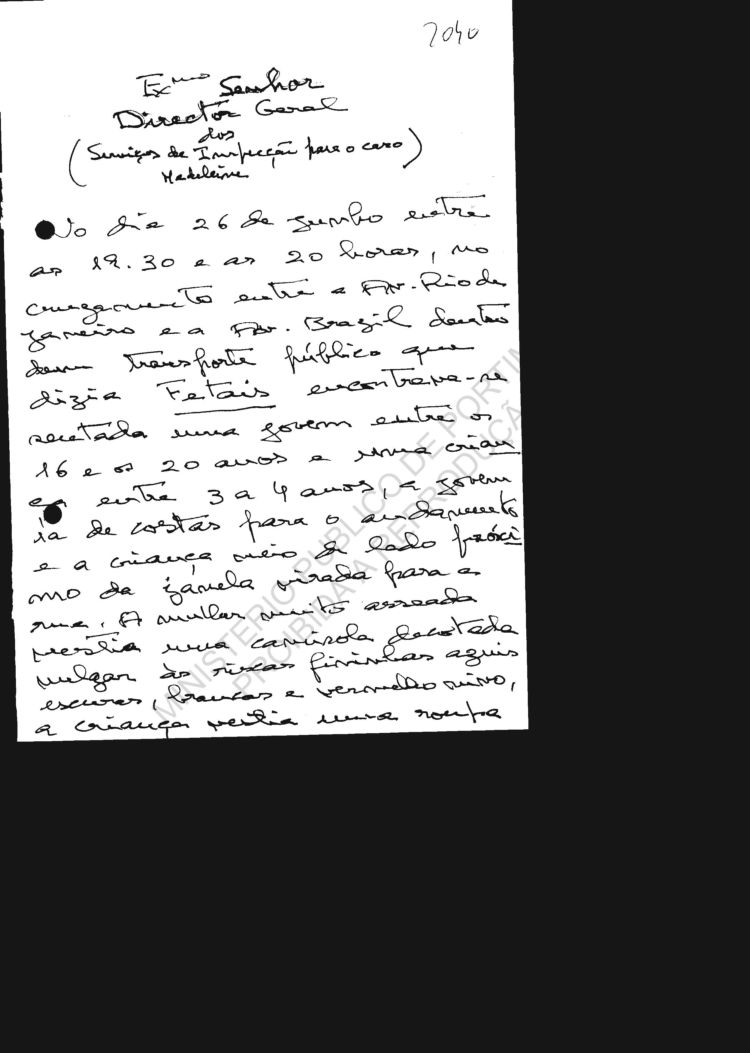 2040
Exmo Senhor
Director Geral
dos
(Serviços de Inspecção para o caso)
Madeleine
No dia 26 de Junho entre
as 19.30 e as 20 horas, no
cruzamento entre a Av. Rio de
Janeiro e a Av. Brazil dentro
dum transporte público que
dizia Fetais encontrava-se
sentada uma jovem entre os
16 e os 20 anos e uma crian
ça entre 3 a 4 anos, a jovem
ia de costas para o andamento
e a criança meio de lado próxi
mo da janela virada para a
rua. A mulher muito asseada
vestia uma camisola decotada
vulgar às riscas fininhas azuis
escuras, brancas e vermelho vivo,
a criança vestia uma roupa
MINISTERIO PUBLICO DE PORTIM
PROIBIDA A REPRODUÇÃ